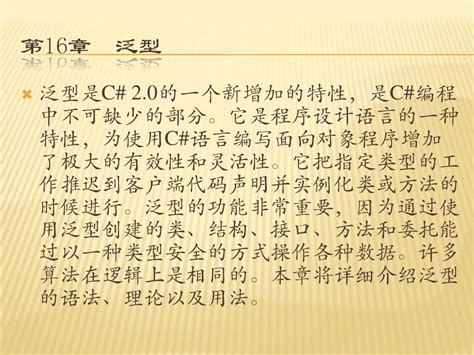 第16章　泛型
泛型是C# 2.0的一个新增加的特性，是C#编程
中不可缺少的部分。它是程序设计语言的一种
特性，为使用C#语言编写面向对象程序增加
了极大的有效性和灵活性。它把指定类型的工
作推迟到客户端代码声明并实例化类或方法的
时候进行。泛型的功能非常重要，因为通过使
用泛型创建的类、结构、接口、方法和委托能
过以一种类型安全的方式操作各种数据。许多
算法在逻辑上是相同的。本章将详细介绍泛型
的语法、理论以及用法。